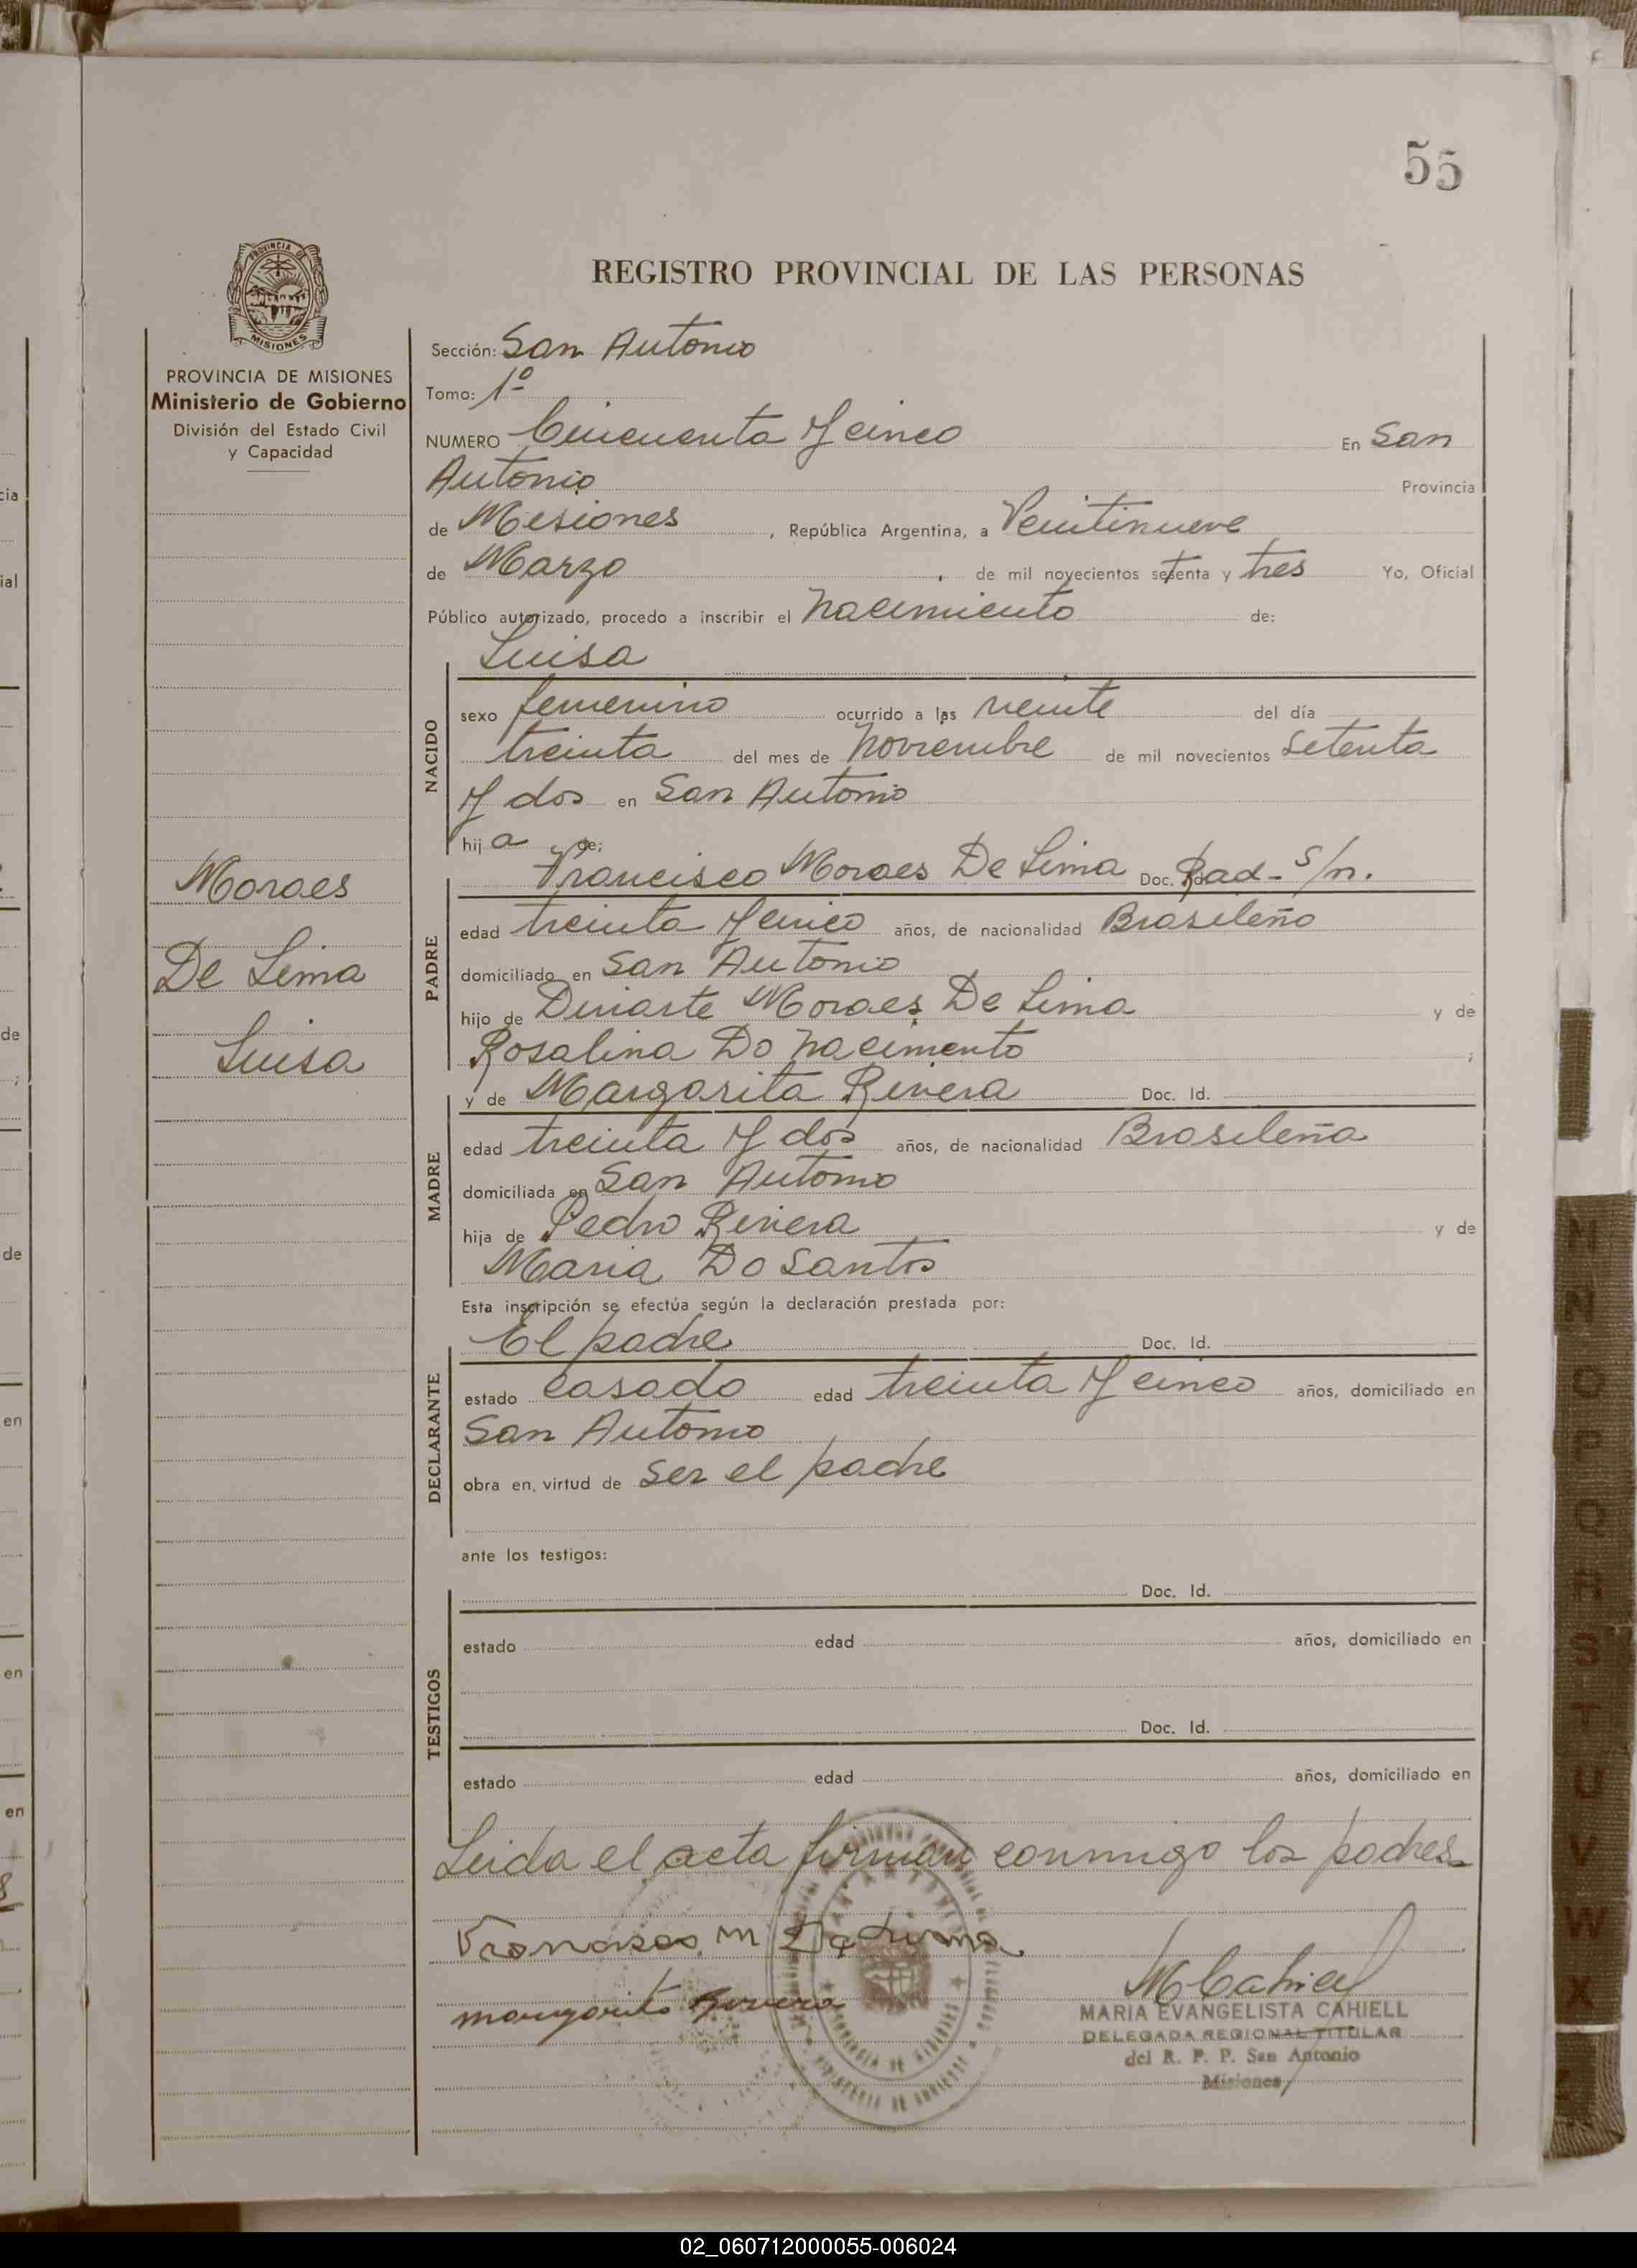 55
PROVINCIA DE
MISIONES
PROVINCIA DE MISIONES
Ministerio de Gobierno
División del Estado Civil
y Capacidad
Moraes
De Lima
Luisa
REGISTRO PROVINCIAL DE LAS PERSONAS
Sección: San Antonio
Tomo: 1º
NUMERO Cincuenta y cinco En San
Antonio Provincia
de Misiones, República Argentina, a Veintinueve
de Marzo, de mil novecientos setenta y tres Yo, Oficial
Público autorizado, procedo a inscribir el nacimiento de:
Luisa
NACIDO
sexo femenino ocurrido a las veinte del día
treinta del mes de noviembre de mil novecientos setenta
y dos en San Antonio
hija de:
PADRE
Francisco Moraes De Lima Doc. Rad- s/n.
edad treinta y cinco años, de nacionalidad Brasileño
domiciliado en San Antonio
hijo de Duarte Moraes De Lima y de
Rosalina Do Nacimento ;
MADRE
y de Margarita Rivera Doc. Id.
edad treinta y dos años, de nacionalidad Brasileña
domiciliada en San Antonio
hija de Pedro Rivera y de
Maria Do Santos
Esta inscripción se efectúa según la declaración prestada por:
DECLARANTE
El padre Doc. Id.
estado casado edad treinta y cinco años, domiciliado en
San Antonio
obra en virtud de ser el padre
ante los testigos:
TESTIGOS
Doc. Id.
estado edad años, domiciliado en
Doc. Id.
estado edad años, domiciliado en
Leida el acta firman conmigo los padres
Francisco M De Lima
margarita Rivera
M Cahiell
MARIA EVANGELISTA CAHIELL
DELEGADA REGIONAL TITULAR
del R. P. P. San Antonio
Misiones
02_060712000055-006024